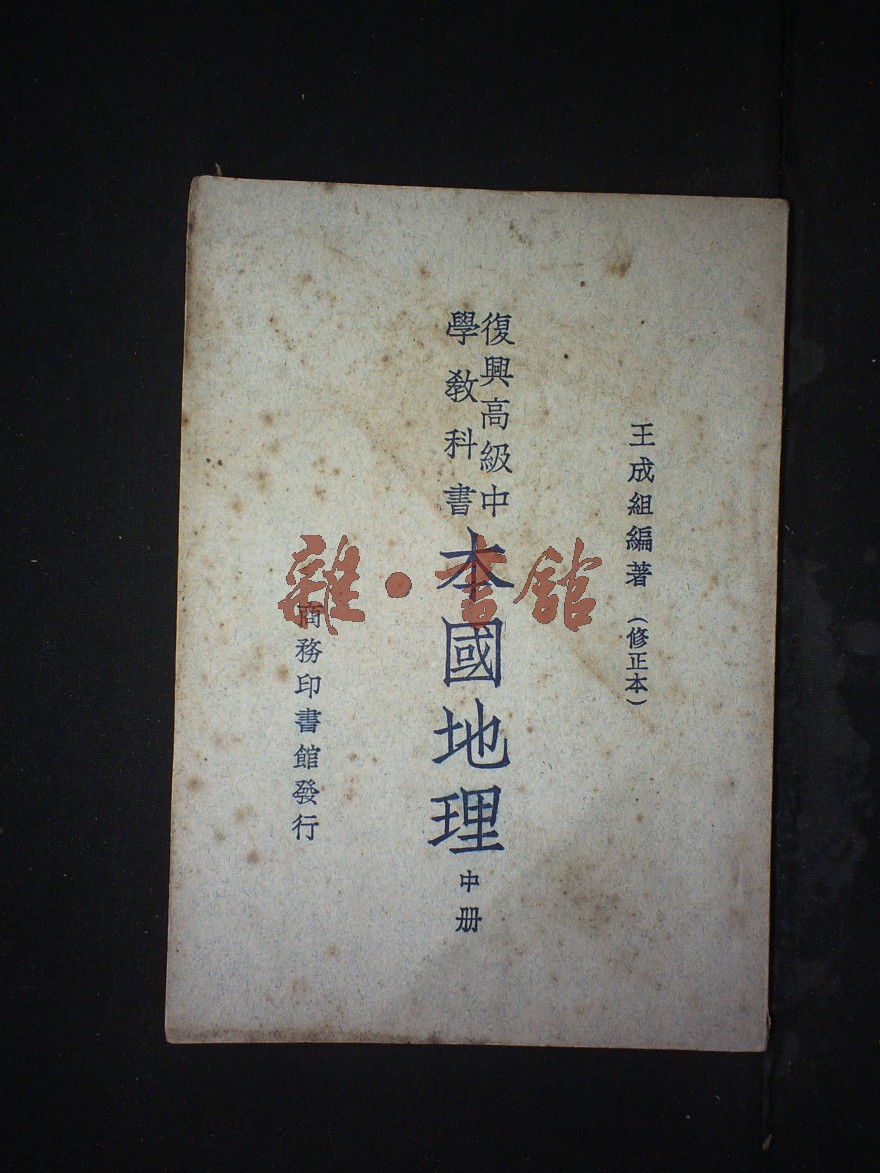 王成組編著（修正本）
復興高級中
學教科書
本國地理中册
商務印書館發行
雜·書館